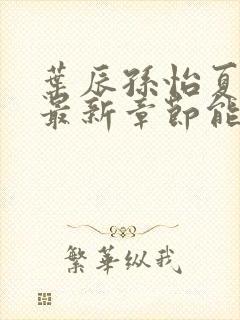 葉辰孫怡夏
最新章節能
繁華纵我